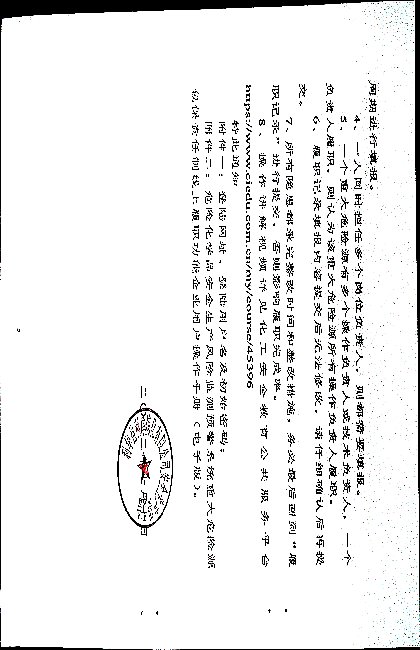 周期进行填报。
4、一人同时担任多个岗位负责人，则都需要填报。
5、一个重大危险源有多个操作负责人或技术负责人，一个
负责人履职，则认为该重大危险源所有操作负责人履职。
6、履职记录填报内容提交后无法修改，请仔细确认后再提
交。
7、所有隐患都录完整改时间和整改措施，务必最后回到“履
职记录”进行提交，否则影响履职完成率。
8、操作讲解视频详见化工安全教育公共服务平台
https://www.ciedu.com.cn/my/course/45396
特此通知
附件一：登陆网址、登陆用户名及初始密码；
附件二：危险化学品安全生产风险监测预警系统重大危险源
包保责任制线上履职功能企业用户操作手册（电子版）。